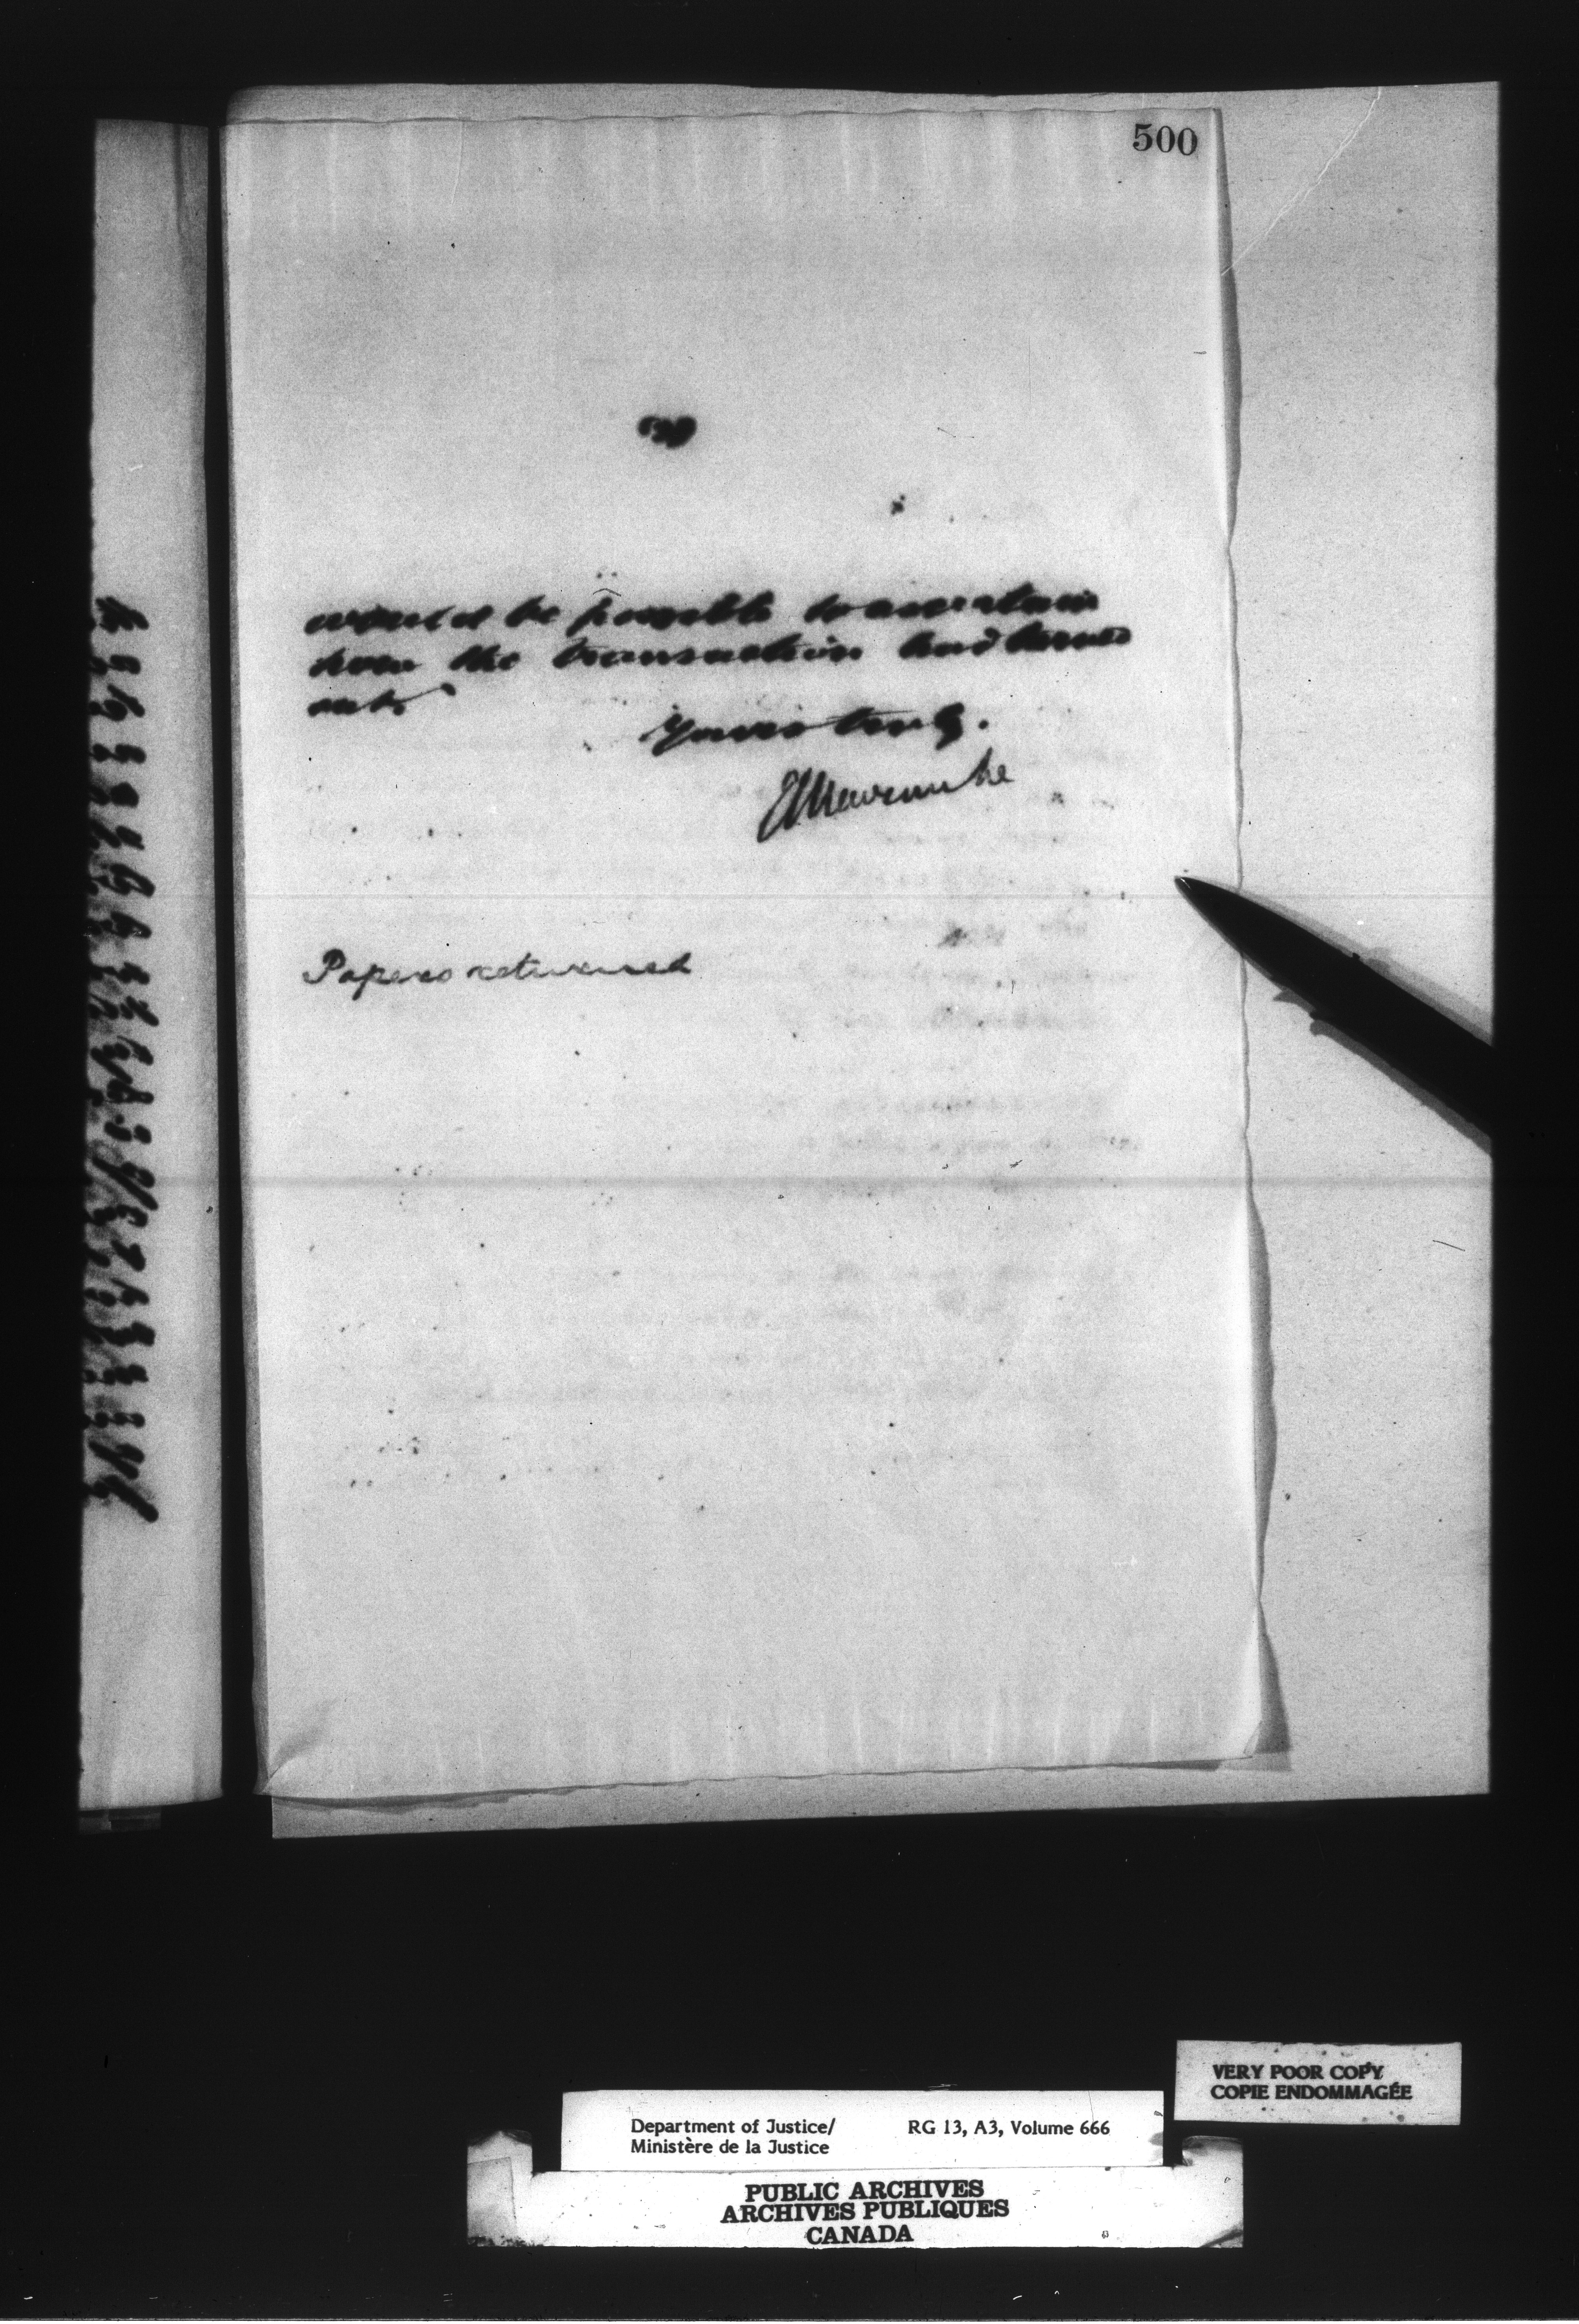 500
would be possible to ascertain
how the transaction had turned
out.
Yours truly.
E L Newcombe
Papers returned
VERY POOR COPY
COPIE ENDOMMAGÉE
Department of Justice/ RG 13, A3, Volume 666
Ministère de la Justice
PUBLIC ARCHIVES
ARCHIVES PUBLIQUES
CANADA